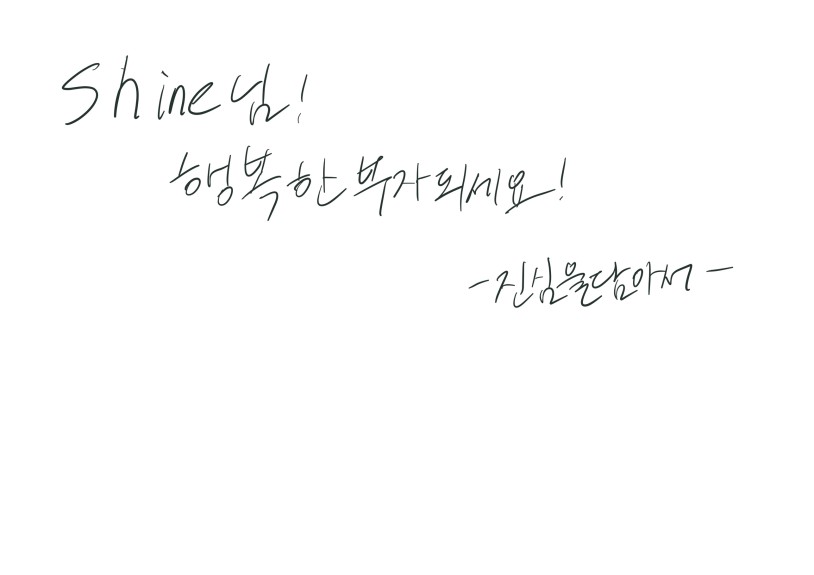 Shine님!
행복한 부자되세요!
-진심을담아서-